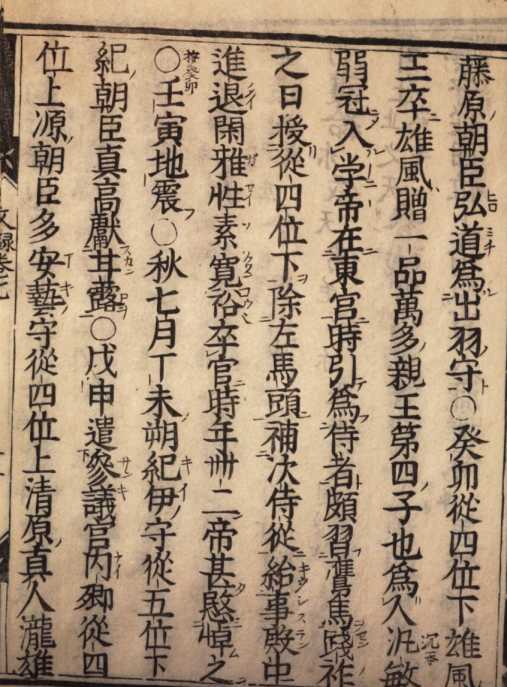 藤原朝臣弘道爲出羽守○癸卯從四位下雄風
王卒雄風贈一品萬多親王第四子也爲人汎敏
弱冠入学帝在東宮時引爲侍者頗習鷹馬踐祚
之日授從四位下除左馬頭補次侍從給事殿中
進退閑雅性素寛裕卒官時年卌二帝甚愍悼之
○壬寅地震○秋七月丁未朔紀伊守從五位下
紀朝臣真高獻甘露○戊申遣參議宮内卿從四
位上源朝臣多安藝守從四位上清原真人瀧雄